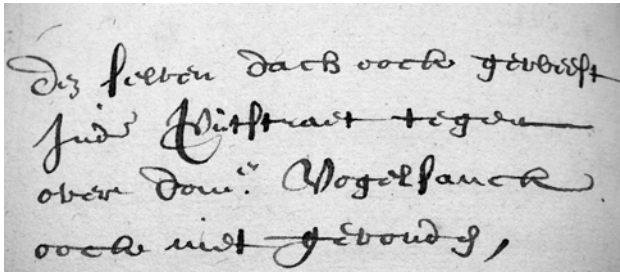 Dez selven dach oock geweest
Inde Putstraet tegen
over dom.er Vogelsanck
oock niet gevonden,